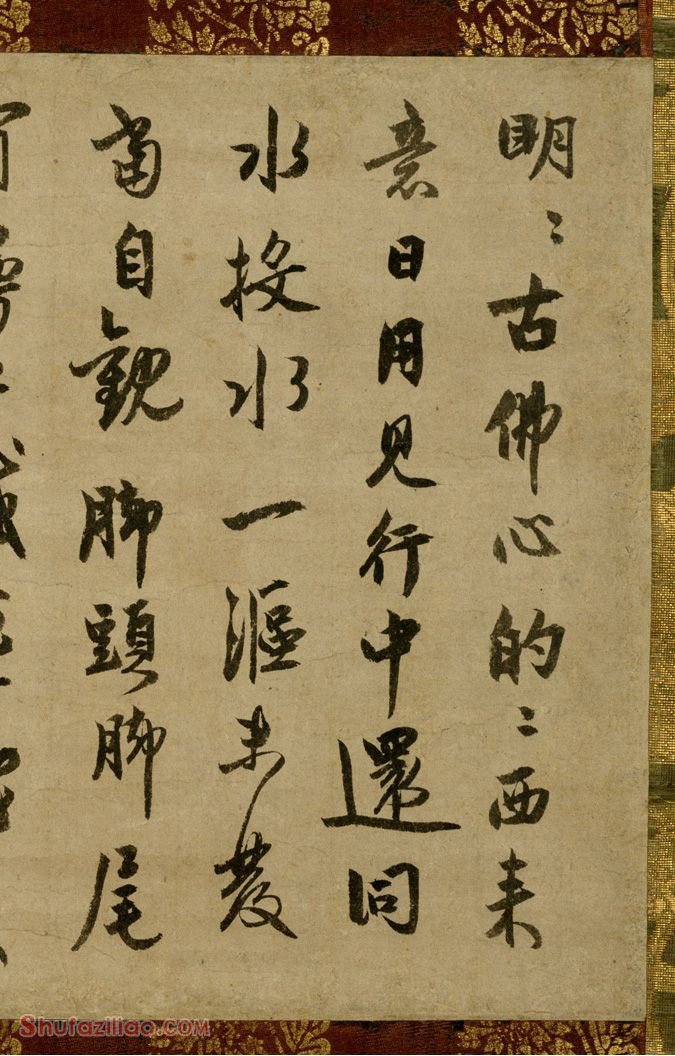 明〻古佛心的〻西来
意日用見行中還同
水投水一漚未發
當自觀脚頭脚尾
Shufaziliao.COM